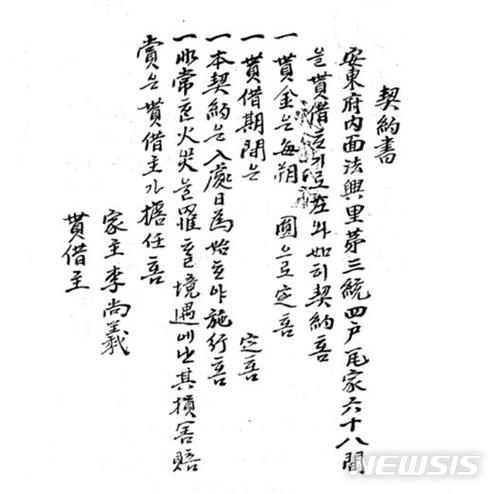 契約書
安東府內面法興里苐三統四戶瓦家六十八間
을貰借ᄒᆞ기로左와如히契約홈
一 貰金은每朔 圓으로定홈
一 貰借期間은 定홈
一本契約은入處日為始ᄒᆞ야施行홈
一非常ᄒᆞᆫ火災을罹ᄒᆞᆯ境遇에ᄂᆞᆫ其損害賠
賞은貰借主가擔任홈
家主李尚義
貰借主
NEWSIS